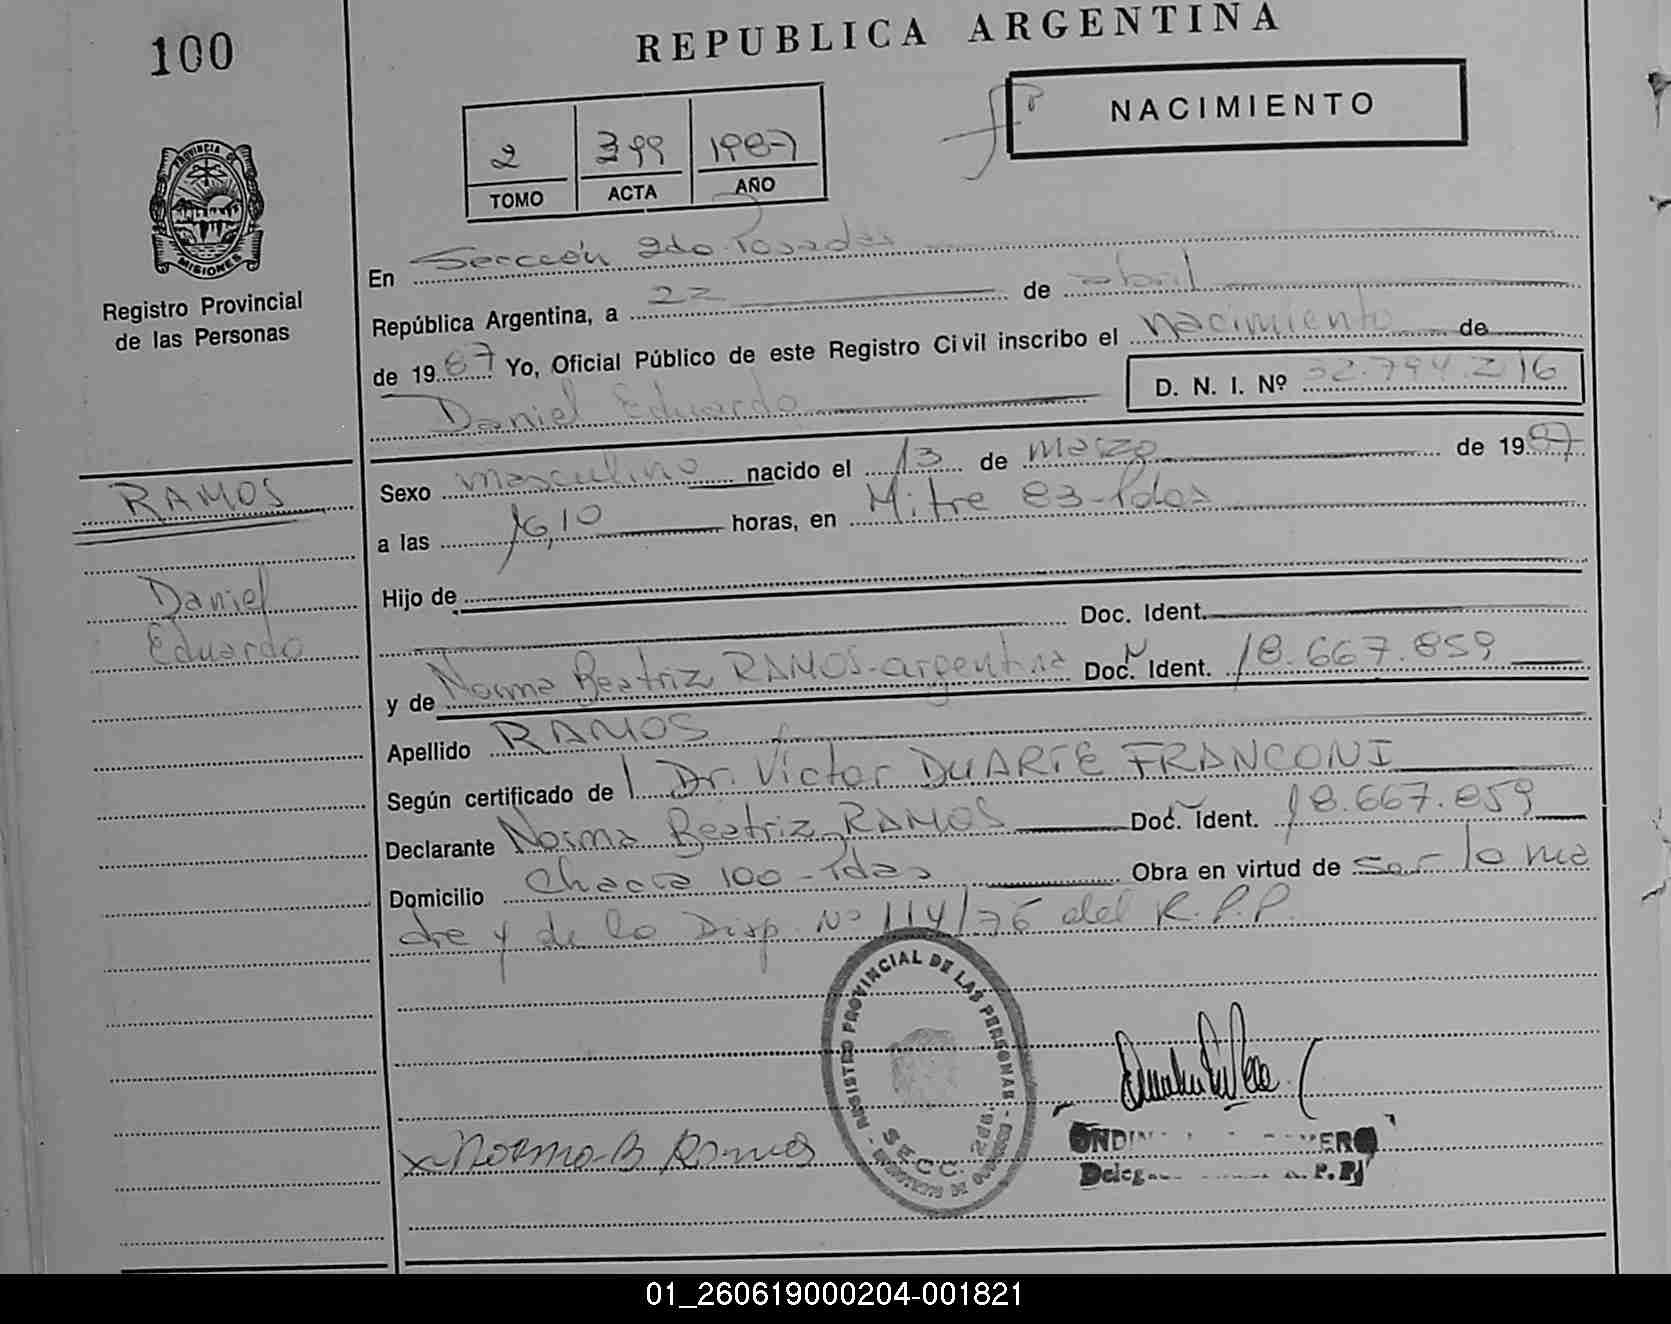 100
REPUBLICA ARGENTINA
NACIMIENTO
2 399 1987
TOMO ACTA AÑO
PROVINCIA DE
MISIONES
Registro Provincial
de las Personas
En Sección 2do Posadas
República Argentina, a 22 de abril
de 1987 Yo, Oficial Público de este Registro Civil inscribo el nacimiento de
Daniel Eduardo D. N. I. Nº 32.794.216
RAMOS
Daniel
Eduardo
Sexo masculino nacido el 13 de marzo de 1987
a las 16,10 horas, en Mitre 83-Pdas
Hijo de
Doc. Ident.
y de Norma Beatriz RAMOS-argentina Doc. Ident. 18.667.859
Apellido RAMOS
Según certificado de Dr. Victor DUARTE FRANCONI
Declarante Norma Beatriz RAMOS Doc. Ident. 18.667.859
Domicilio Chacra 100-Pdas Obra en virtud de ser la ma
dre y de la Disp. Nº 114/76 del R.P.P.
REGISTRO PROVINCIAL DE LAS PERSONAS
SECC. 2da.
x Norma B Ramos
01_260619000204-001821